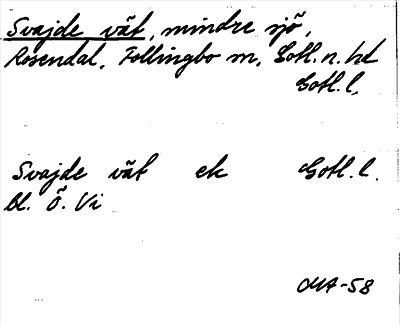 Svajde vät, mindre sjö,
Rosendal, Follingbo m, Gotl. n. hd
Gotl. l.
Svajde vät ek Gotl. l.
bl. Ö. Vi
MA-58